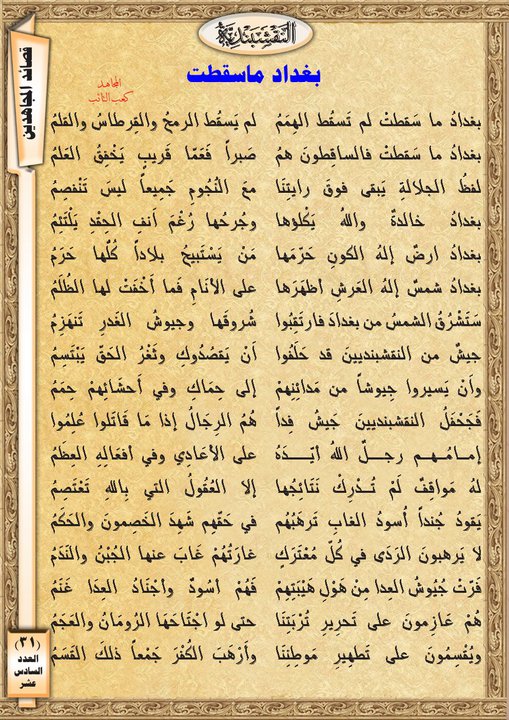 النقشبندية
قصائد المجاهدين
بغداد ماسقطت
المجاهد
كعب التائب
بغدادُ ما سَقطتْ لم تَسقُط الهِمَمُ لم يَسقُط الرمحُ والقِرطاسُ والقلمُ
بغدادُ ما سَقطتْ فالساقِطونَ هُمُ صَبراً فَعَمّا قَريبٍ يَخْفِقُ العَلَمُ
لفظُ الجلالةِ يَبقى فوقَ رايتِنا معَ النُجُومِ جَمِيعاً ليسَ تَنْفصِمُ
بغدادُ خالدةٌ واللهُ يَكْلؤها وجُرحُها رُغْمَ أنفِ الحِقْدِ يَلْتَئِمُ
بغدادُ ارضٌ إلهُ الكونِ حَرّمَها مَنْ يَسْتَبيحُ بلاداً كُلُّها حَرَمُ
بغدادُ شمسٌ إلهُ العَرشِ أظهَرَها على الأنَامِ فَما أخْفَتْ لها الظُلَمُ
سَتَشْرُقُ الشمسُ من بغدادَ فارتَقِبُوا شُروقَها وجيوشُ الغَدرِ تَنهَزِمُ
جيشٌ من النقشبنديين قد حَلَفُوا أنْ يَقصُدُوكِ وثَغْرُ الحَقّ يَبْتَسِمُ
وأنْ يَسيروا جيوشاً من مَدائِنِهِمْ إلى حِمَاكِ وفي أحشَائِهِمْ حِمَمُ
فَجَحْفَلُ النقشبنديينَ جَيشُ فِداً هُمُ الرِجَالُ إذا مَا قَاتَلوا عُلِمُوا
إمامُـهـم رجـلٌ اللهُ أيّـدَهُ على الأعَادِي وفي أفعَالِهِ العِظَمُ
لهُ مَواقفُ لَمْ تُـدرِكْ نَتَائِجُها إلا العُقُولُ التي باللهِ تَعْتَصمُ
يَقودُ جُنداً أسُودُ الغابِ تَرهَبُهُم في حَقّهِم شَهِدَ الخَصمُونَ والحَكَمُ
لا يَرهبونَ الرَدَى في كُلّ مُعْتَرَكٍ غَارَتُهُمْ غَابَ عنها الجُبْنُ والنَدَمُ
فَرّتْ جُيُوشُ العِدا مِنْ هَوْلِ هَيْبَتِهِمْ فَهُمْ أسُودٌ وأجْنَادُ العِدَا غَنَمُ
هُمْ عَازِمونَ على تَحريرِ تُرْبَتِنَا حتى لو اجْتَاحَهَا الرُومَانُ والعَجَمُ
ويُقْسِمُونَ على تَطهيرِ مَوطِنِنَا وأرْهَبَ الكُفْرَ جَمْعاً ذلكَ القَسَمُ
(٣١)
العدد
السادس
عشر